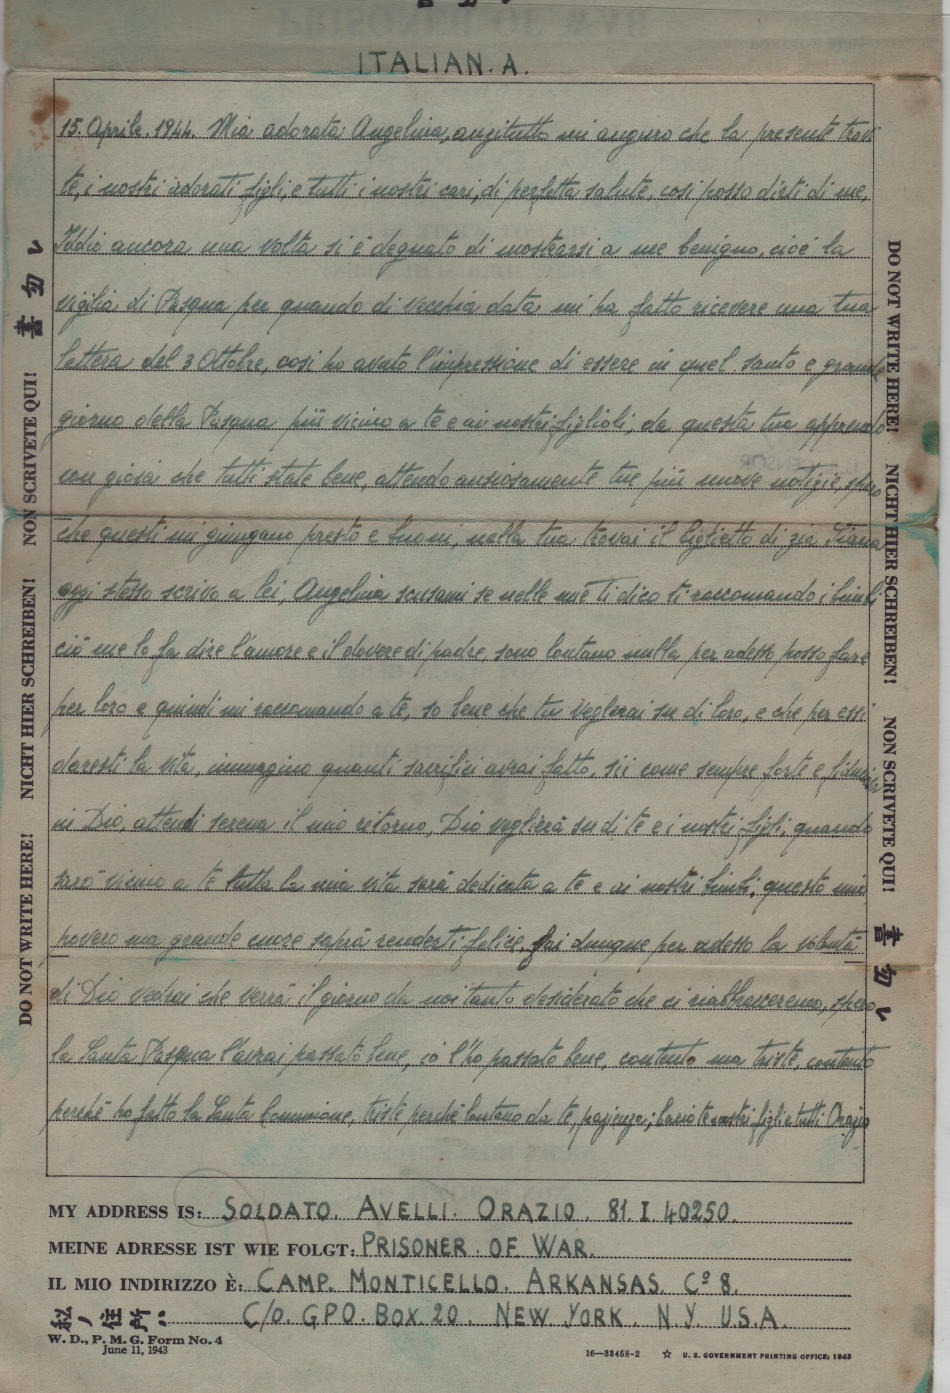 ITALIAN. A.
15. Aprile. 1944. Mia adorata Angelina, anzitutto mi auguro che la presente trovi
te, i nostri adorati figli, e tutti i nostri cari, di perfetta salute, così posso dirti di me,
Iddio ancora una volta si è degnato di mostrarsi a me benigno, cioè la
vigilia di Pasqua per quando di vecchia data mi ha fatto ricevere una tua
lettera del 3 Ottobre, così ho avuto l'impressione di essere in quel santo e grande
giorno della Pasqua più vicino a te e ai nostri figlioli, da questa tua apprendo
con gioia che tutti state bene, attendo ansiosamente tue più nuove notizie, spero
che questi mi giungano presto e buoni, nella tua trovai il biglietto di zia
oggi stesso scrivo a lei, Angelina scusami se nelle mie ti dico ti raccomando i bimbi
ciò me lo fa dire l'amore e il dovere di padre, sono lontano nulla per adesso posso fare
per loro e quindi mi raccomando a te, so bene che tu veglierai su di loro, e che per essi
daresti la vita, immagino quanti sacrifici avrai fatto, sii come sempre forte e fiduciosa
in Dio, attendi serena il mio ritorno, Dio veglierà su di te e i nostri figli, quando
sarò vicino a te tutta la mia vita sarà dedicata a te e ai nostri bimbi, questo mio
povero ma grande cuore saprà renderti felice, fai dunque per adesso la volontà
di Dio vedrai che verrà il giorno da noi tanto desiderato che ci riabbracceremo, spero
la Santa Pasqua l'avrai passato bene, io l'ho passato bene, contento ma triste, contento
perchè ho fatto la Santa Comunione, triste perchè lontano da te, pazienza; bacio te nostri figli e tutti Orazio
DO NOT WRITE HERE! NICHT HIER SCHREIBEN! NON SCRIVETE QUI! 書勿レ
DO NOT WRITE HERE! NICHT HIER SCHREIBEN! NON SCRIVETE QUI! 書勿レ
MY ADDRESS IS: SOLDATO. AVELLI. ORAZIO. 81. I. 40250.
MEINE ADRESSE IST WIE FOLGT: PRISONER OF WAR.
IL MIO INDIRIZZO È: CAMP. MONTICELLO. ARKANSAS. Cº 8.
私ノ住所: C/O. G.P.O. BOX. 20. NEW YORK. N.Y. U.S.A.
W. D., P. M. G. Form No. 4
June 11, 1943
16—33458-2 ☆ U. S. GOVERNMENT PRINTING OFFICE: 1943